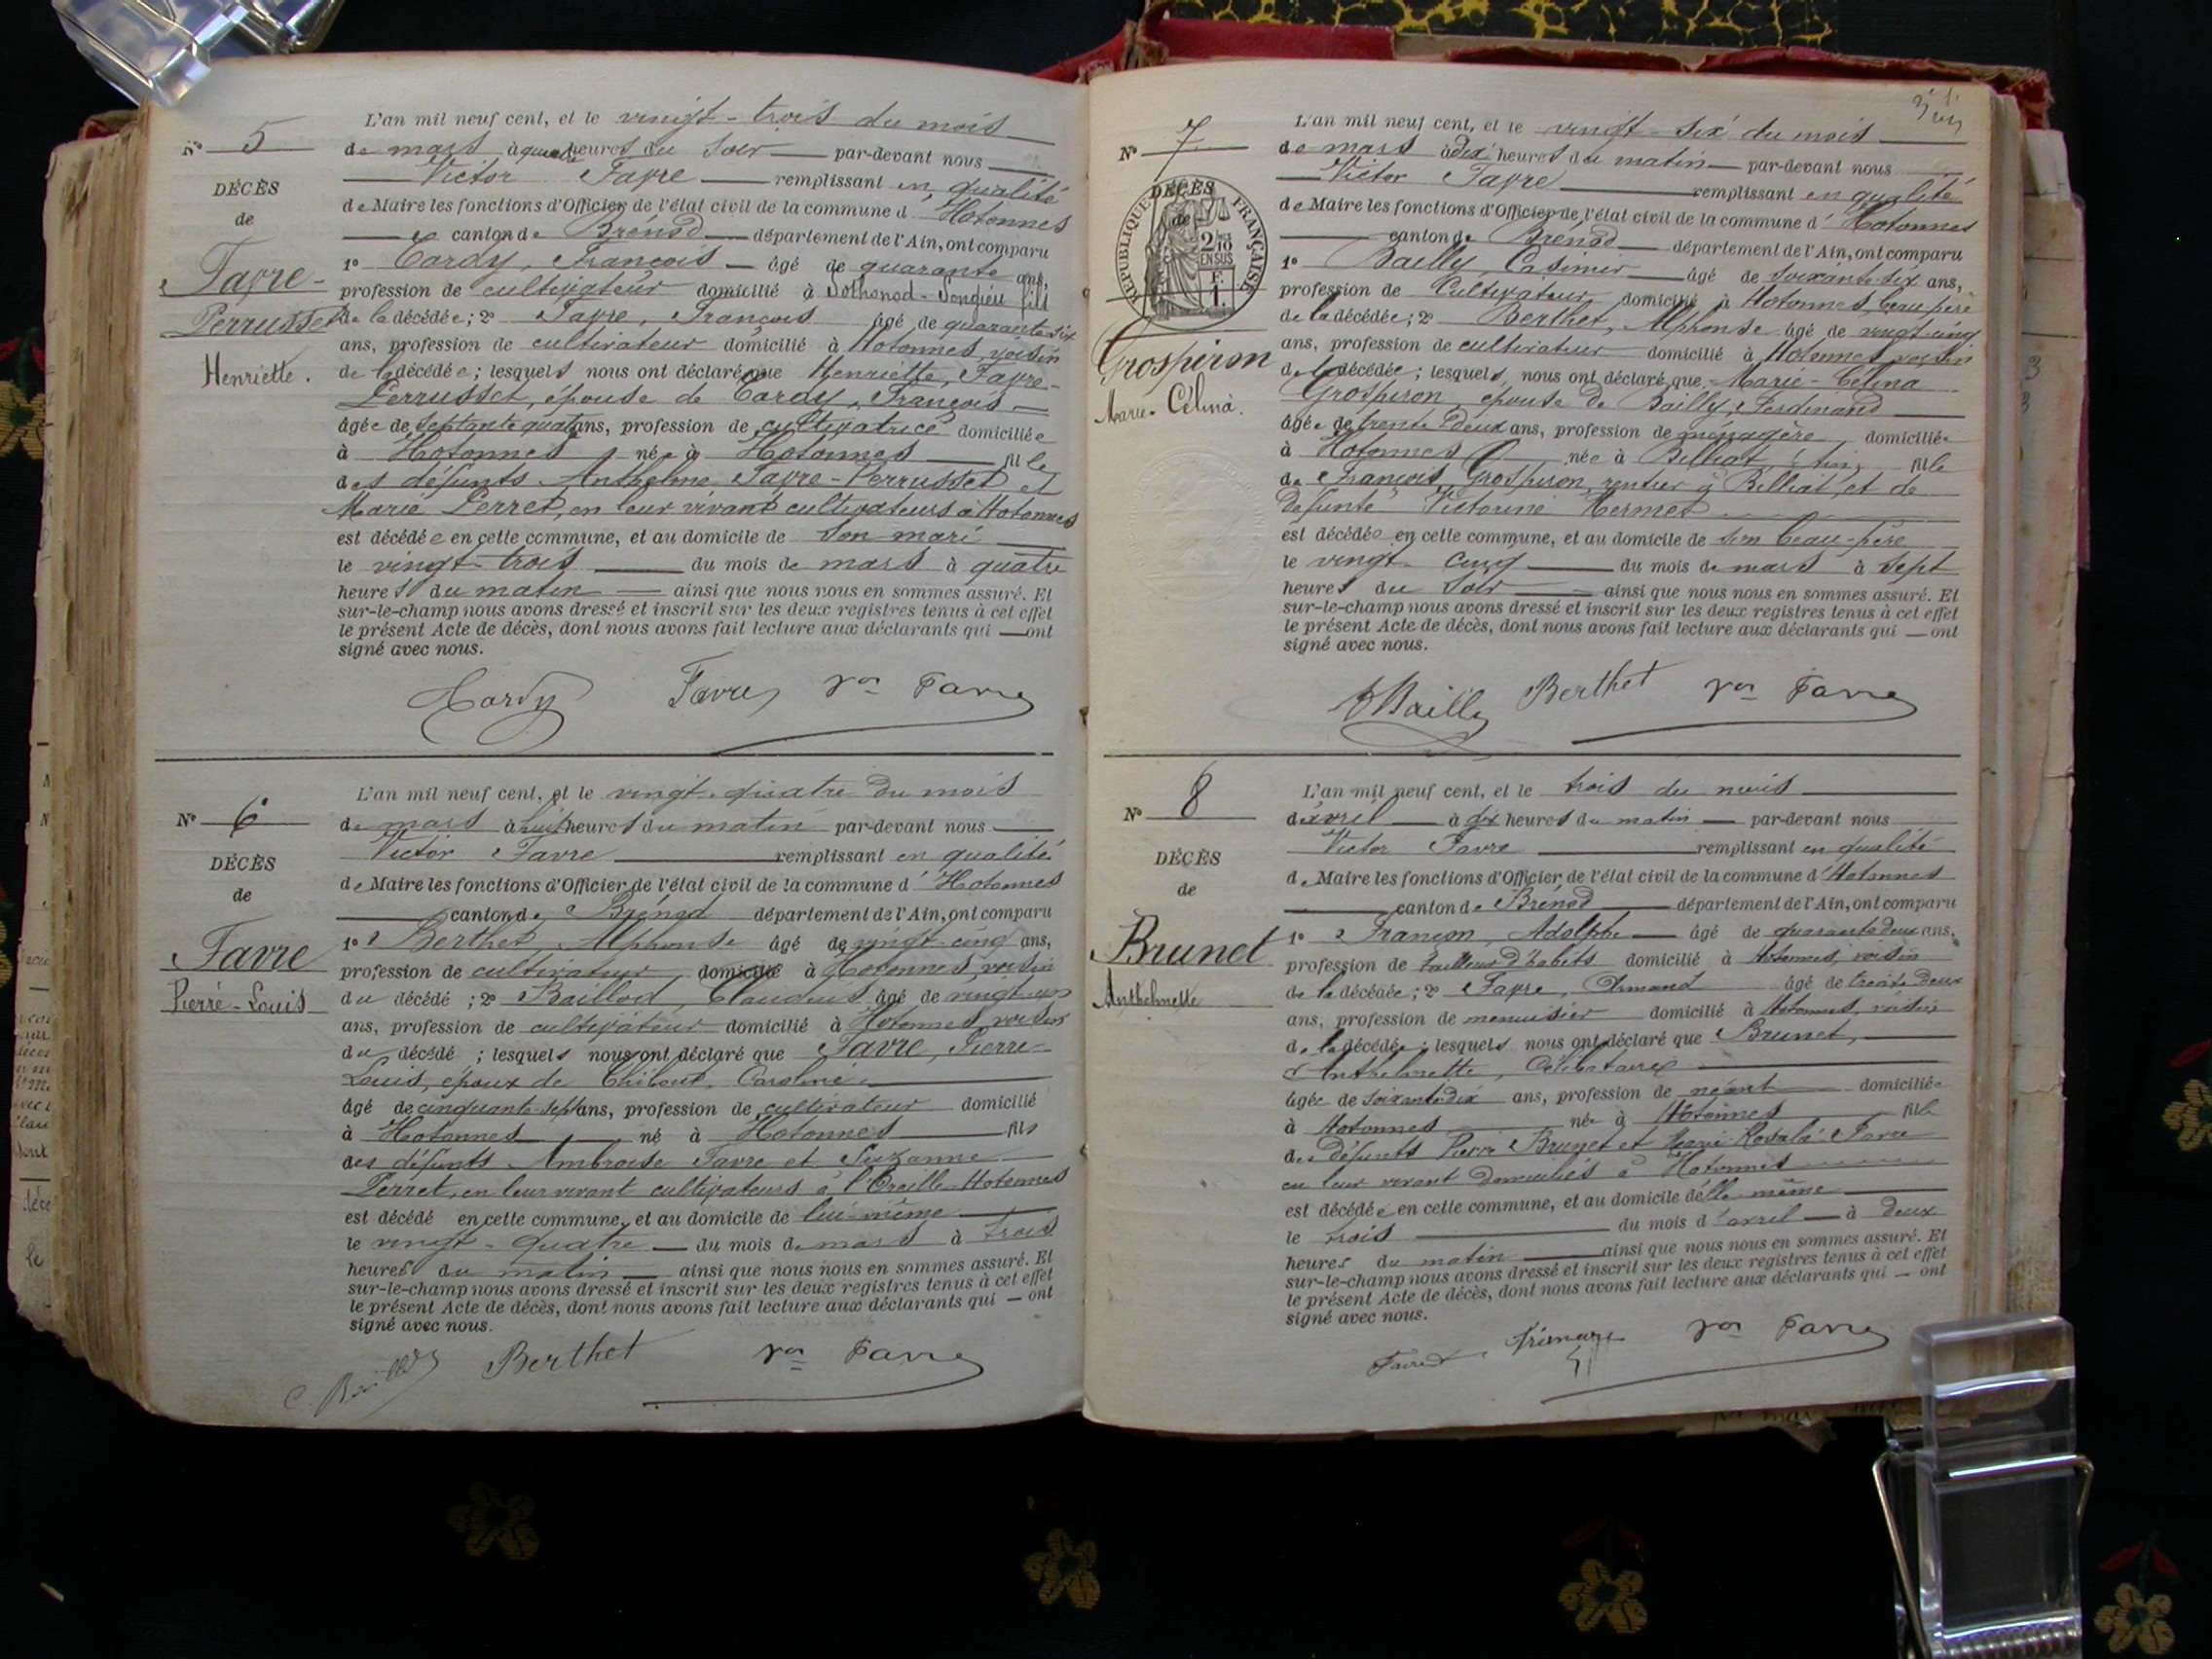 L'an mil neuf cent, et le vingt-trois du mois
N° 5
de mars à quatre heures du soir par-devant nous
Victor Favre remplissant en qualité
DÉCÈS
de Maire les fonctions d'Officier de l'état civil de la commune d'Hotonnes
de
canton de Brénod département de l'Ain, ont comparu
1° Cardy, François âgé de quarante ans,
Favre-
profession de cultivateur domicilié à Sothonod-Songieu fils
Perrusset
de la décédée; 2° Favre, François âgé de quarante-six
ans, profession de cultivateur domicilié à Hotonnes, voisin
Henriette.
de la décédée; lesquels nous ont déclaré que Henriette, Favre-
Perrusset, épouse de Cardy, François
âgée de septante quatre ans, profession de cultivatrice domiciliée
à Hotonnes née à Hotonnes fille
des défunts Anthelme Favre-Perrusset et
Marie Perret, en leur vivant cultivateurs à Hotonnes
est décédée en cette commune, et au domicile de son mari
le vingt-trois du mois de mars à quatre
heures du matin ainsi que nous nous en sommes assuré. Et
sur-le-champ nous avons dressé et inscrit sur les deux registres tenus à cet effet
le présent Acte de décès, dont nous avons fait lecture aux déclarants qui ont
signé avec nous.
Cardy Favre Vor Favre
L'an mil neuf cent, et le vingt-quatre du mois
N° 6
de mars à huit heures du matin par-devant nous
Victor Favre remplissant en qualité
DÉCÈS
de Maire les fonctions d'Officier de l'état civil de la commune d'Hotonnes
de
canton de Brénod département de l'Ain, ont comparu
Favre
1° Berthet, Alphonse âgé de vingt-cinq ans,
profession de cultivateur domicilié à Hotonnes, voisin
Pierre-Louis
du décédé; 2° Baillod, Claudius âgé de vingt-
ans, profession de cultivateur domicilié à Hotonnes, voisin
du décédé; lesquels nous ont déclaré que Favre, Pierre-
Louis, époux de Thibout, Caroline
âgé de cinquante-sept ans, profession de cultivateur domicilié
à Hotonnes né à Hotonnes fils
des défunts Ambroise Favre et Suzanne
Perret, en leur vivant cultivateurs à l'Oreille-Hotonnes
est décédé en cette commune, et au domicile de lui-même
le vingt-quatre du mois de mars à trois
heures du matin ainsi que nous nous en sommes assuré. Et
sur-le-champ nous avons dressé et inscrit sur les deux registres tenus à cet effet
le présent Acte de décès, dont nous avons fait lecture aux déclarants qui ont
signé avec nous.
C. Baillod Berthet Vor Favre
L'an mil neuf cent, et le vingt-six du mois
N° 7
de mars à dix heures du matin par-devant nous
Victor Favre remplissant en qualité
DÉCÈS
de
RÉPUBLIQUE FRANÇAISE
2/10 EN SUS
F. 1.
de Maire les fonctions d'Officier de l'état civil de la commune d'Hotonnes
canton de Brénod département de l'Ain, ont comparu
1° Bailly, Casimir âgé de soixante-six ans,
profession de Cultivateur domicilié à Hotonnes, beau-père
de la décédée; 2° Berthet, Alphonse âgé de vingt-cinq
Grospiron
ans, profession de cultivateur domicilié à Hotonnes, voisin
Marie-Célina.
de la décédée; lesquels nous ont déclaré que Marie-Célina
Grospiron, épouse de Bailly, Ferdinand
âgée de trente deux ans, profession de ménagère, domiciliée
à Hotonnes née à Billiat, (Ain) fille
de François Grospiron, rentier à Billiat, et de
défunte Victorine Hermet
est décédée en cette commune, et au domicile de son beau-père
le vingt-cinq du mois de mars à sept
heures du soir ainsi que nous nous en sommes assuré. Et
sur-le-champ nous avons dressé et inscrit sur les deux registres tenus à cet effet
le présent Acte de décès, dont nous avons fait lecture aux déclarants qui ont
signé avec nous.
Bailly Berthet Vor Favre
L'an mil neuf cent, et le trois du mois
N° 8
d'avril à dix heures du matin par-devant nous
Victor Favre remplissant en qualité
DÉCÈS
de Maire les fonctions d'Officier de l'état civil de la commune d'Hotonnes
de
canton de Brénod département de l'Ain, ont comparu
Brunet
1° Françon, Adolphe âgé de quarante deux ans,
profession de tailleur d'habits domicilié à Hotonnes, voisin
Anthelmette
de la décédée; 2° Favre, Armand âgé de trente deux
ans, profession de menuisier domicilié à Hotonnes, voisin
de la décédée; lesquels nous ont déclaré que Brunet,
Anthelmette, Célibataire
âgée de soixante dix ans, profession de néant domiciliée
à Hotonnes née à Hotonnes fille
des défunts Pierre Brunet et Marie Rosalie Favre
en leur vivant domiciliés à Hotonnes
est décédée en cette commune, et au domicile d'elle-même
le trois du mois d'avril à deux
heures du matin ainsi que nous nous en sommes assuré. Et
sur-le-champ nous avons dressé et inscrit sur les deux registres tenus à cet effet
le présent Acte de décès, dont nous avons fait lecture aux déclarants qui ont
signé avec nous.
Favre Vor Favre